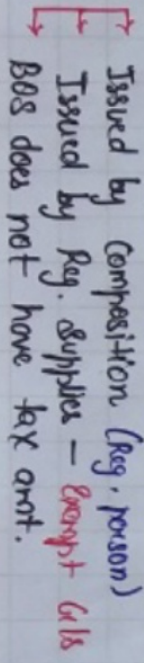 Issued by Composition (Reg. person)
Issued by Reg. Supplies - Exempt G/S
BOS does not have tax amt.